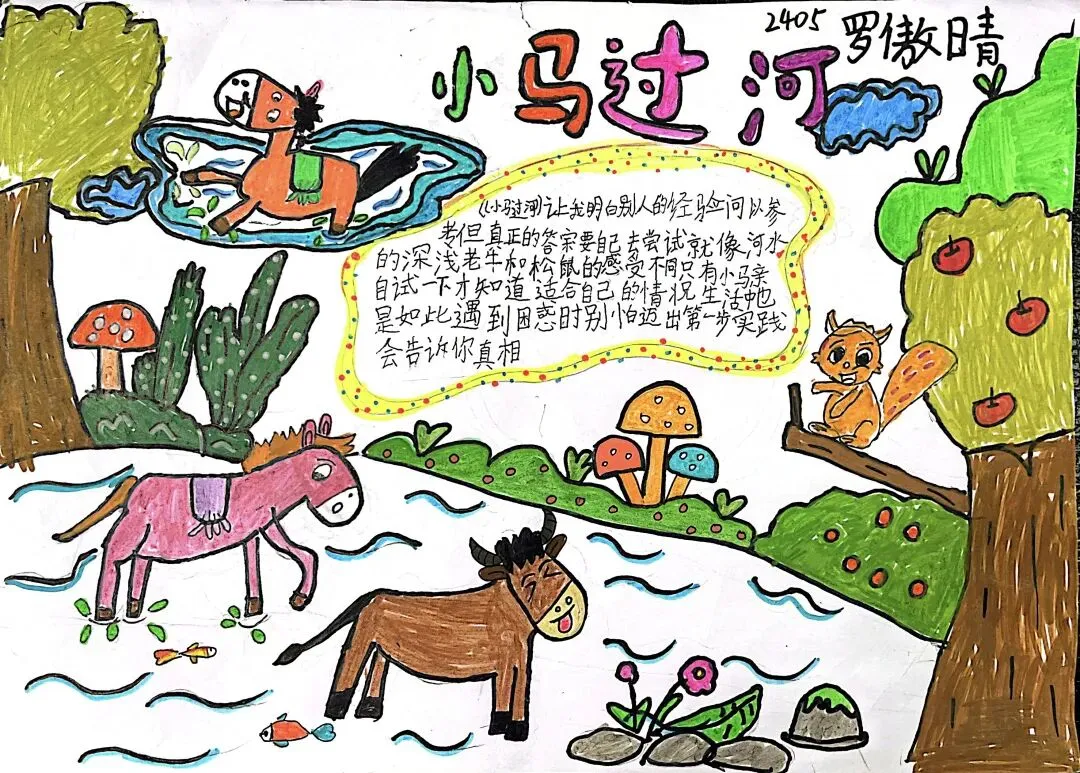 2405 罗傲晴
小马过河
《小马过河》让我明白别人的经验问以参
考但真正的答案要自己去尝试就像河水
的深浅老牛和松鼠的感受不同只有小马亲
自试一下才知道适合自己的情况生活中也
是如此遇到困惑时别怕迈出第一步实践
会告诉你真相